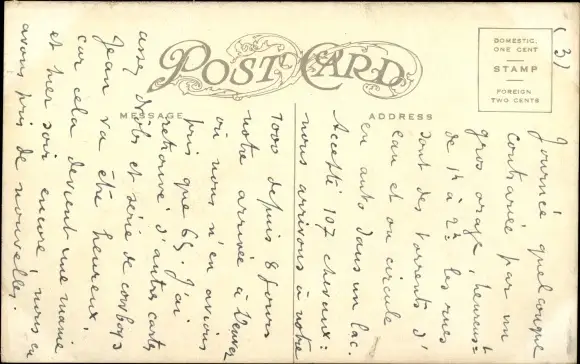 (3)
Journée quelconque
contrariée par un
gros orage, heureust
de 1h à 2h. les rues
sont des torrents d'
eau et on circule
en auto dans un lac.
Accepté 107 chevaux :
nous arrivons à notre
1000 depuis 8 jours
notre arrivée à Denver
où nous n'en avions
pris que 65. J'ai
retrouvé d'autres cartes
assez drôles et série de cowboys
Jean va être heureux,
car cela devient une manie
et hier soir encore, nous en
avons pris de nouvelles.
POST CARD
MESSAGE
ADDRESS
DOMESTIC,
ONE CENT
STAMP
FOREIGN
TWO CENTS